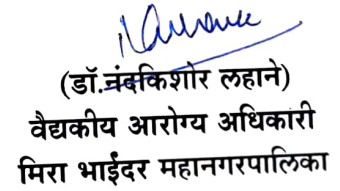 (डॉ.नंदकिशोर लहाने)
वैद्यकीय आरोग्य अधिकारी
मिरा भाईंदर महानगरपालिका